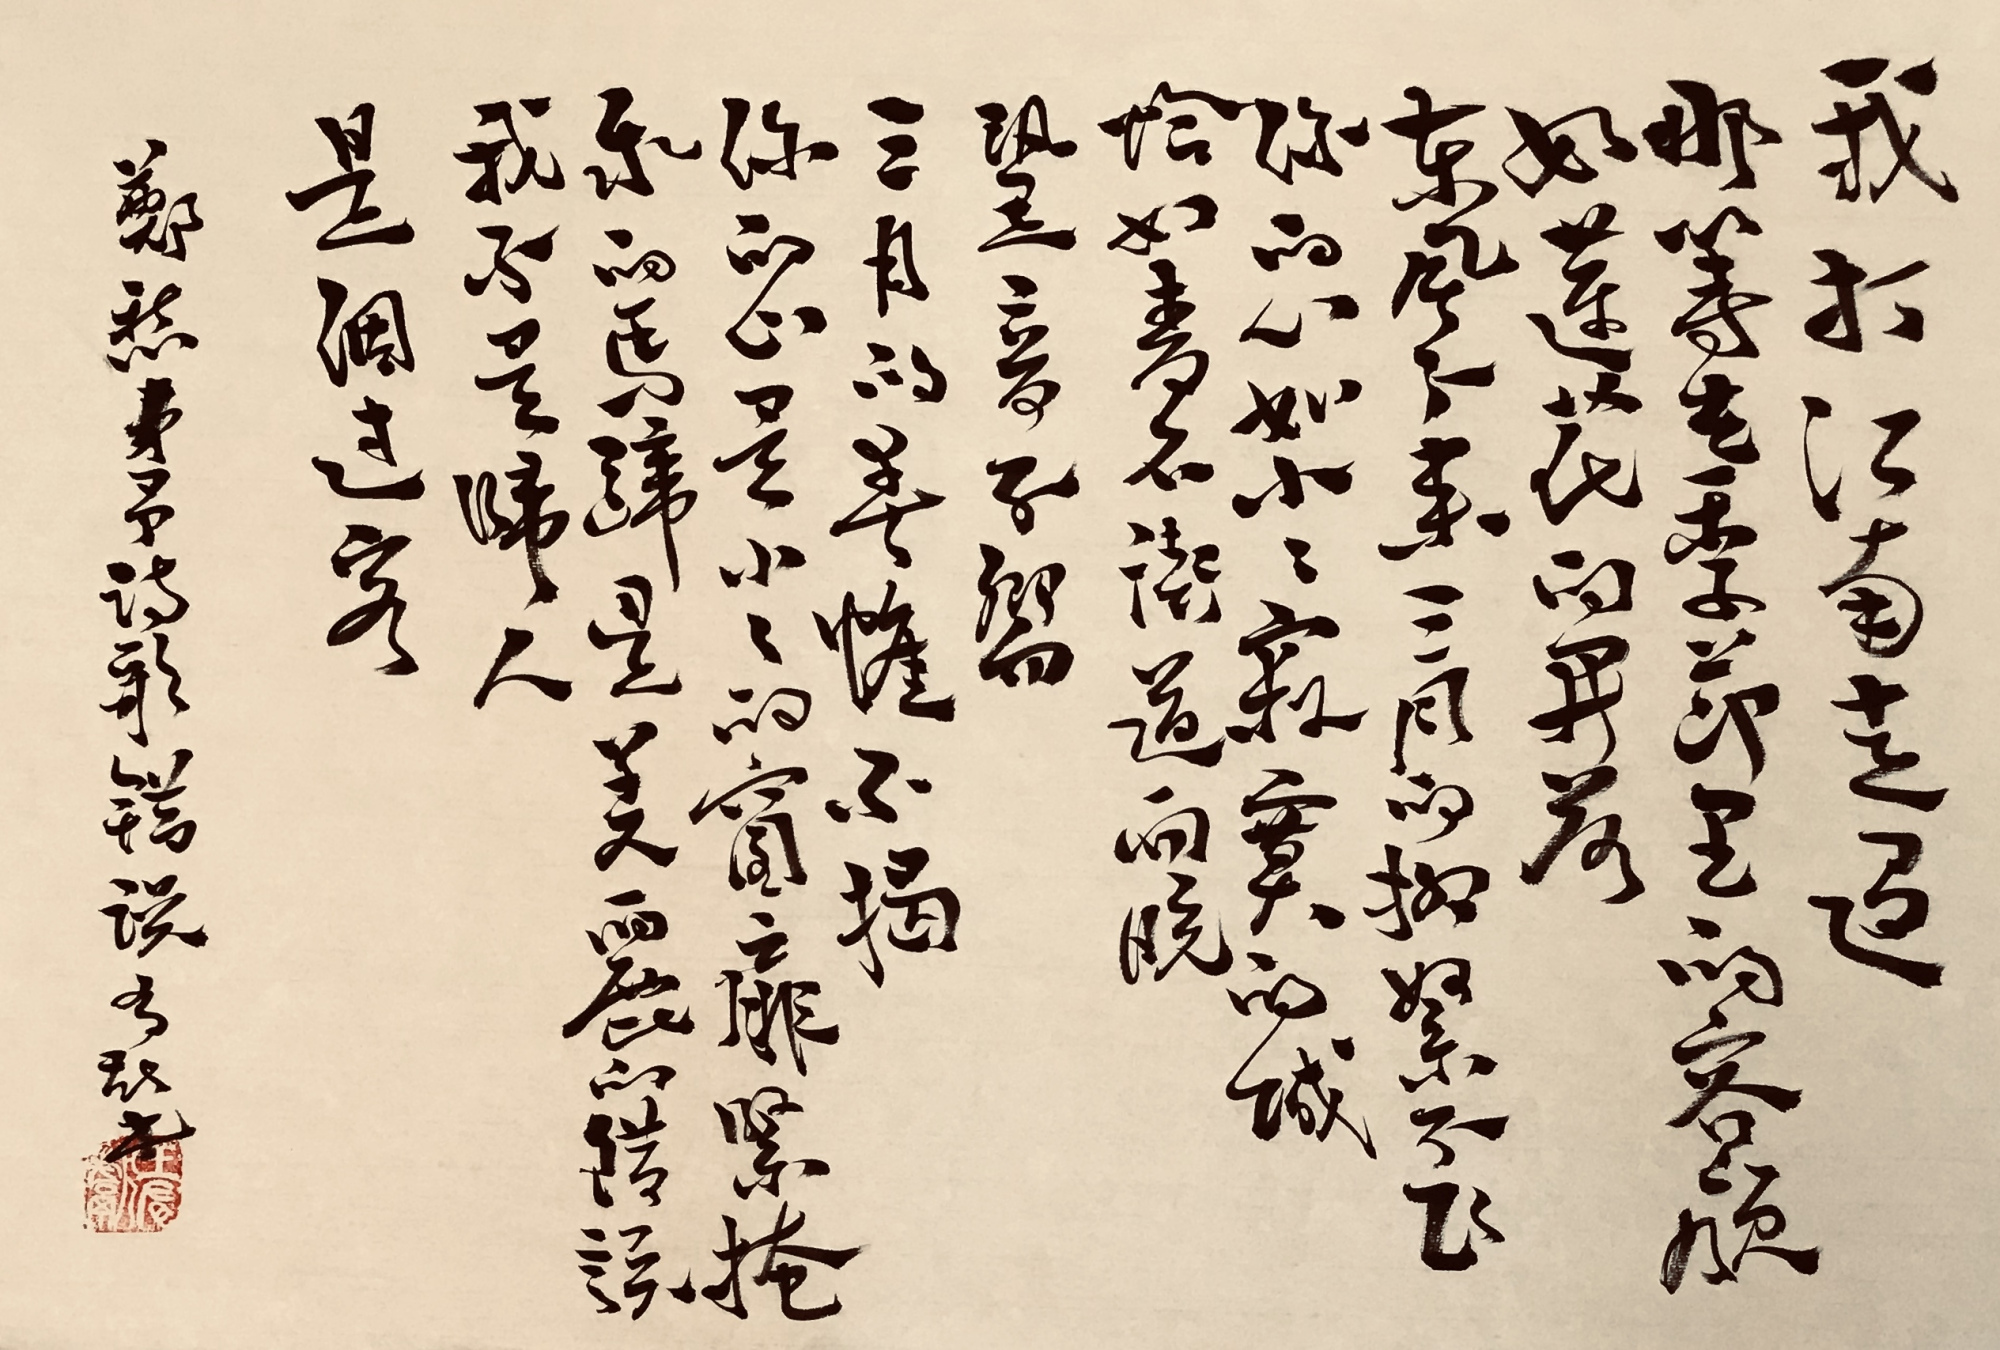 我打江南走過
那等在季節里的容顏
如蓮花的開落
東風不來三月的柳絮不飛
你的心如小小寂寞的城
恰如青石街道向晚
跫音不響
三月的春帷不揭
你的心是小小的窗扉緊掩
我的馬蹄是美麗的錯誤
我不是歸人
是個過客
鄭愁予詩歌錯誤